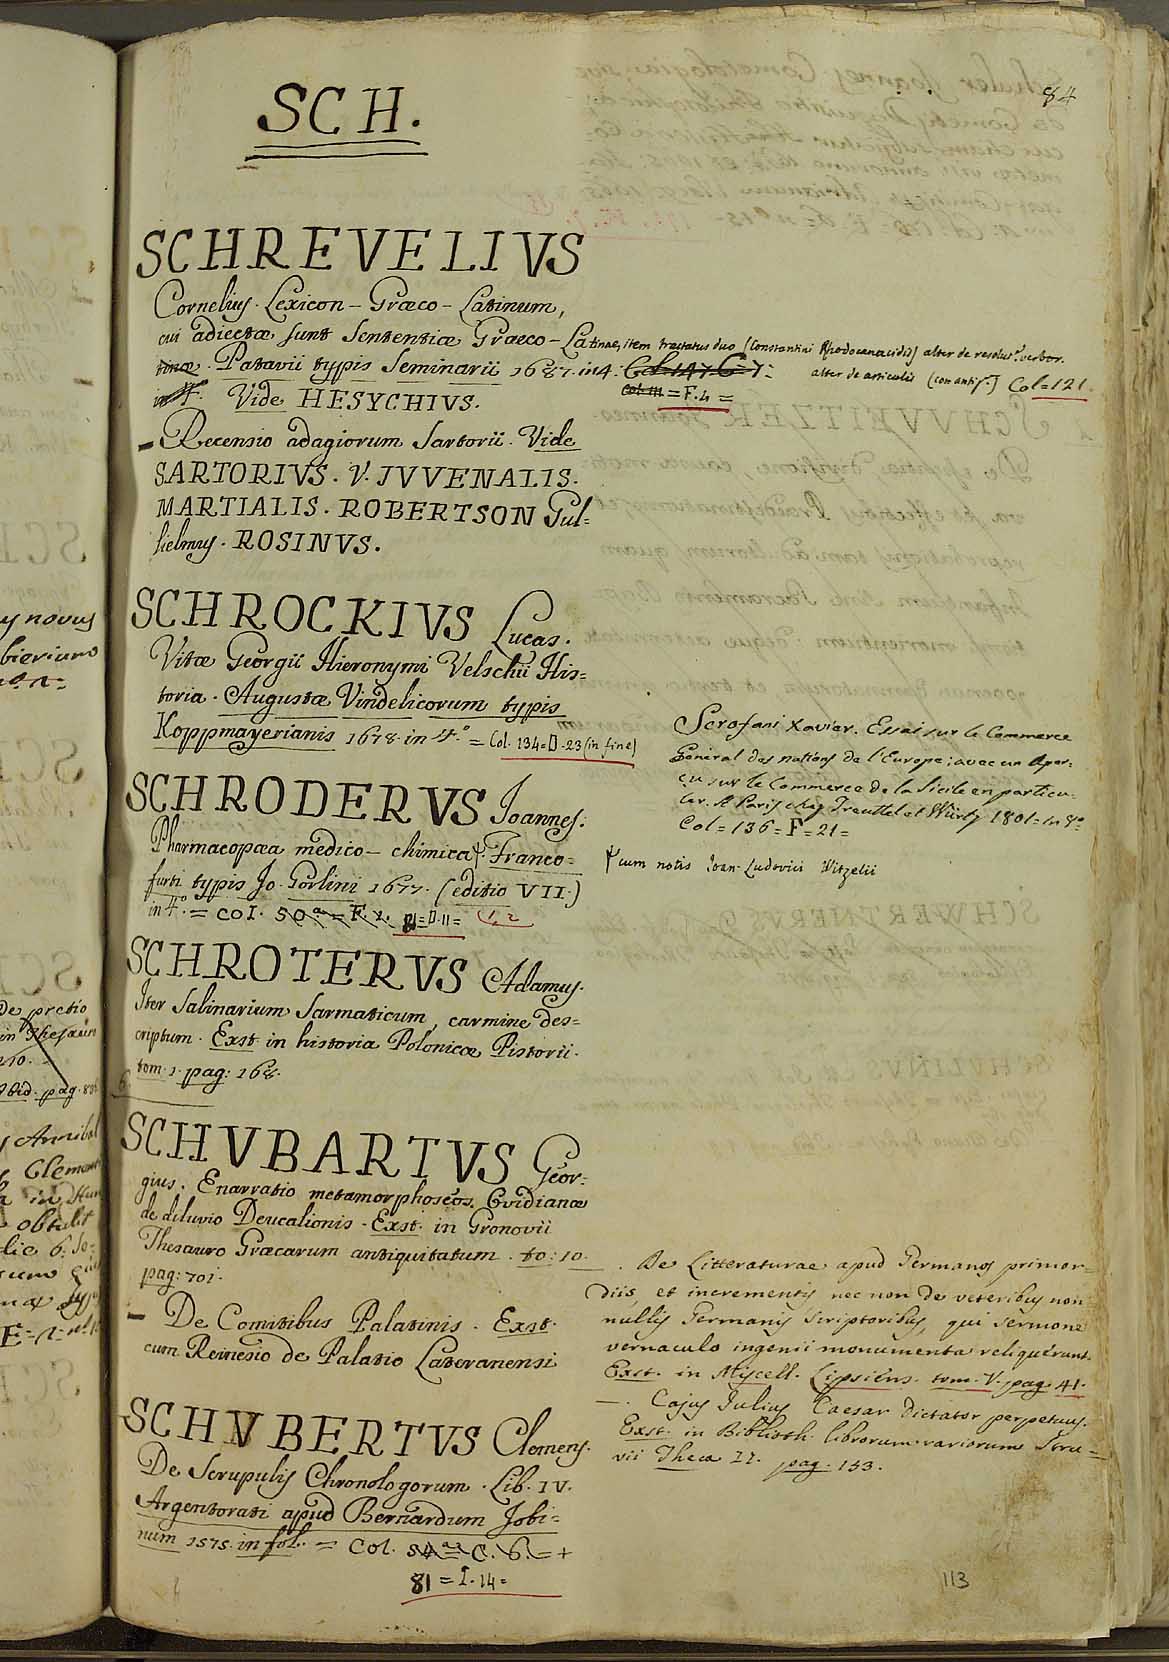 84
SCH.
SCHREVELIVS
Cornelius. Lexicon - Græco - Latinum,
cui adiectæ sunt Sententiæ Græco - Latinae, item tractatus duo (Constantini Rhodocanacidis) alter de resolut.e verbor.
tinæ. Patavii typis Seminarii 1687. in 4. Col. 147. C=7= alter de articulis (con antif.) Col=121.
in 4. Vide HESYCHIVS. Col. 111 = F. 4 =
- Recensio adagiorum Sartorii. Vide
SARTORIVS. V. IVVENALIS.
MARTIALIS. ROBERTSON Gul=
lielmus. ROSINVS.
SCHROCKIVS Lucas.
Vitæ Georgii Hieronymi Velschii His=
toria. Augustæ Vindelicorum typis
Koppmayerianis 1678. in 4.o = Col. 134=D.23 (in fine)
SCHRODERVS Joannes.
Pharmacopæa medico - chimica. Franco=
furti typis Jo. Görlini 1677. (editio VII.)
in 4.o = COL. 50 = F. 2. 81=D.11=
SCHROTERVS Adamus.
Iter Salinarium Sarmaticum, carmine des=
criptum. Exst. in historia Polonicæ Pistorii.
tom. 1. pag: 168.
SCHVBARTVS Geor=
gius. Enarratio metamorphoseos Ovidianæ
de diluvio Deucalionis. Exst. in Gronovii
Thesauro Græcarum antiquitatum. to: 10.
pag: 701.
- De Comitibus Palatinis. Exst.
cum Reinesio de Palatio Lateranensi
SCHVBERTVS Clemens.
De Scrupulis Chronologorum. Lib. IV.
Argentorati apud Bernardum Jobi=
num 1575. in fol. = Col. 54 = C. 6. = +
81 = I. 14 =
Scrofani Xavier. Essai sur le Commerce
Général des nations de l'Europe; avec un Aper=
çu sur le Commerce de la Sicile en particu=
lier. A Paris chez Treuttel et Würtz 1801 = in 8o=
Col = 136 = F = 21 =
cum notis Joan. Ludovici Witzelii
. De Litteraturae apud Germanos primor=
diis, et incrementis nec non de veteribus non=
nullis Germanis Scriptoribus, qui Sermone
vernaculo ingenii monumenta reliquerunt.
Exst. in Miscell. Lipsiens. tom. V. pag. 41.
-. Cajus Julius Caesar Dictator perpetuus.
Exst. in Biblioth. librorum variorum Stru=
vii Theca II. pag. 153.
113